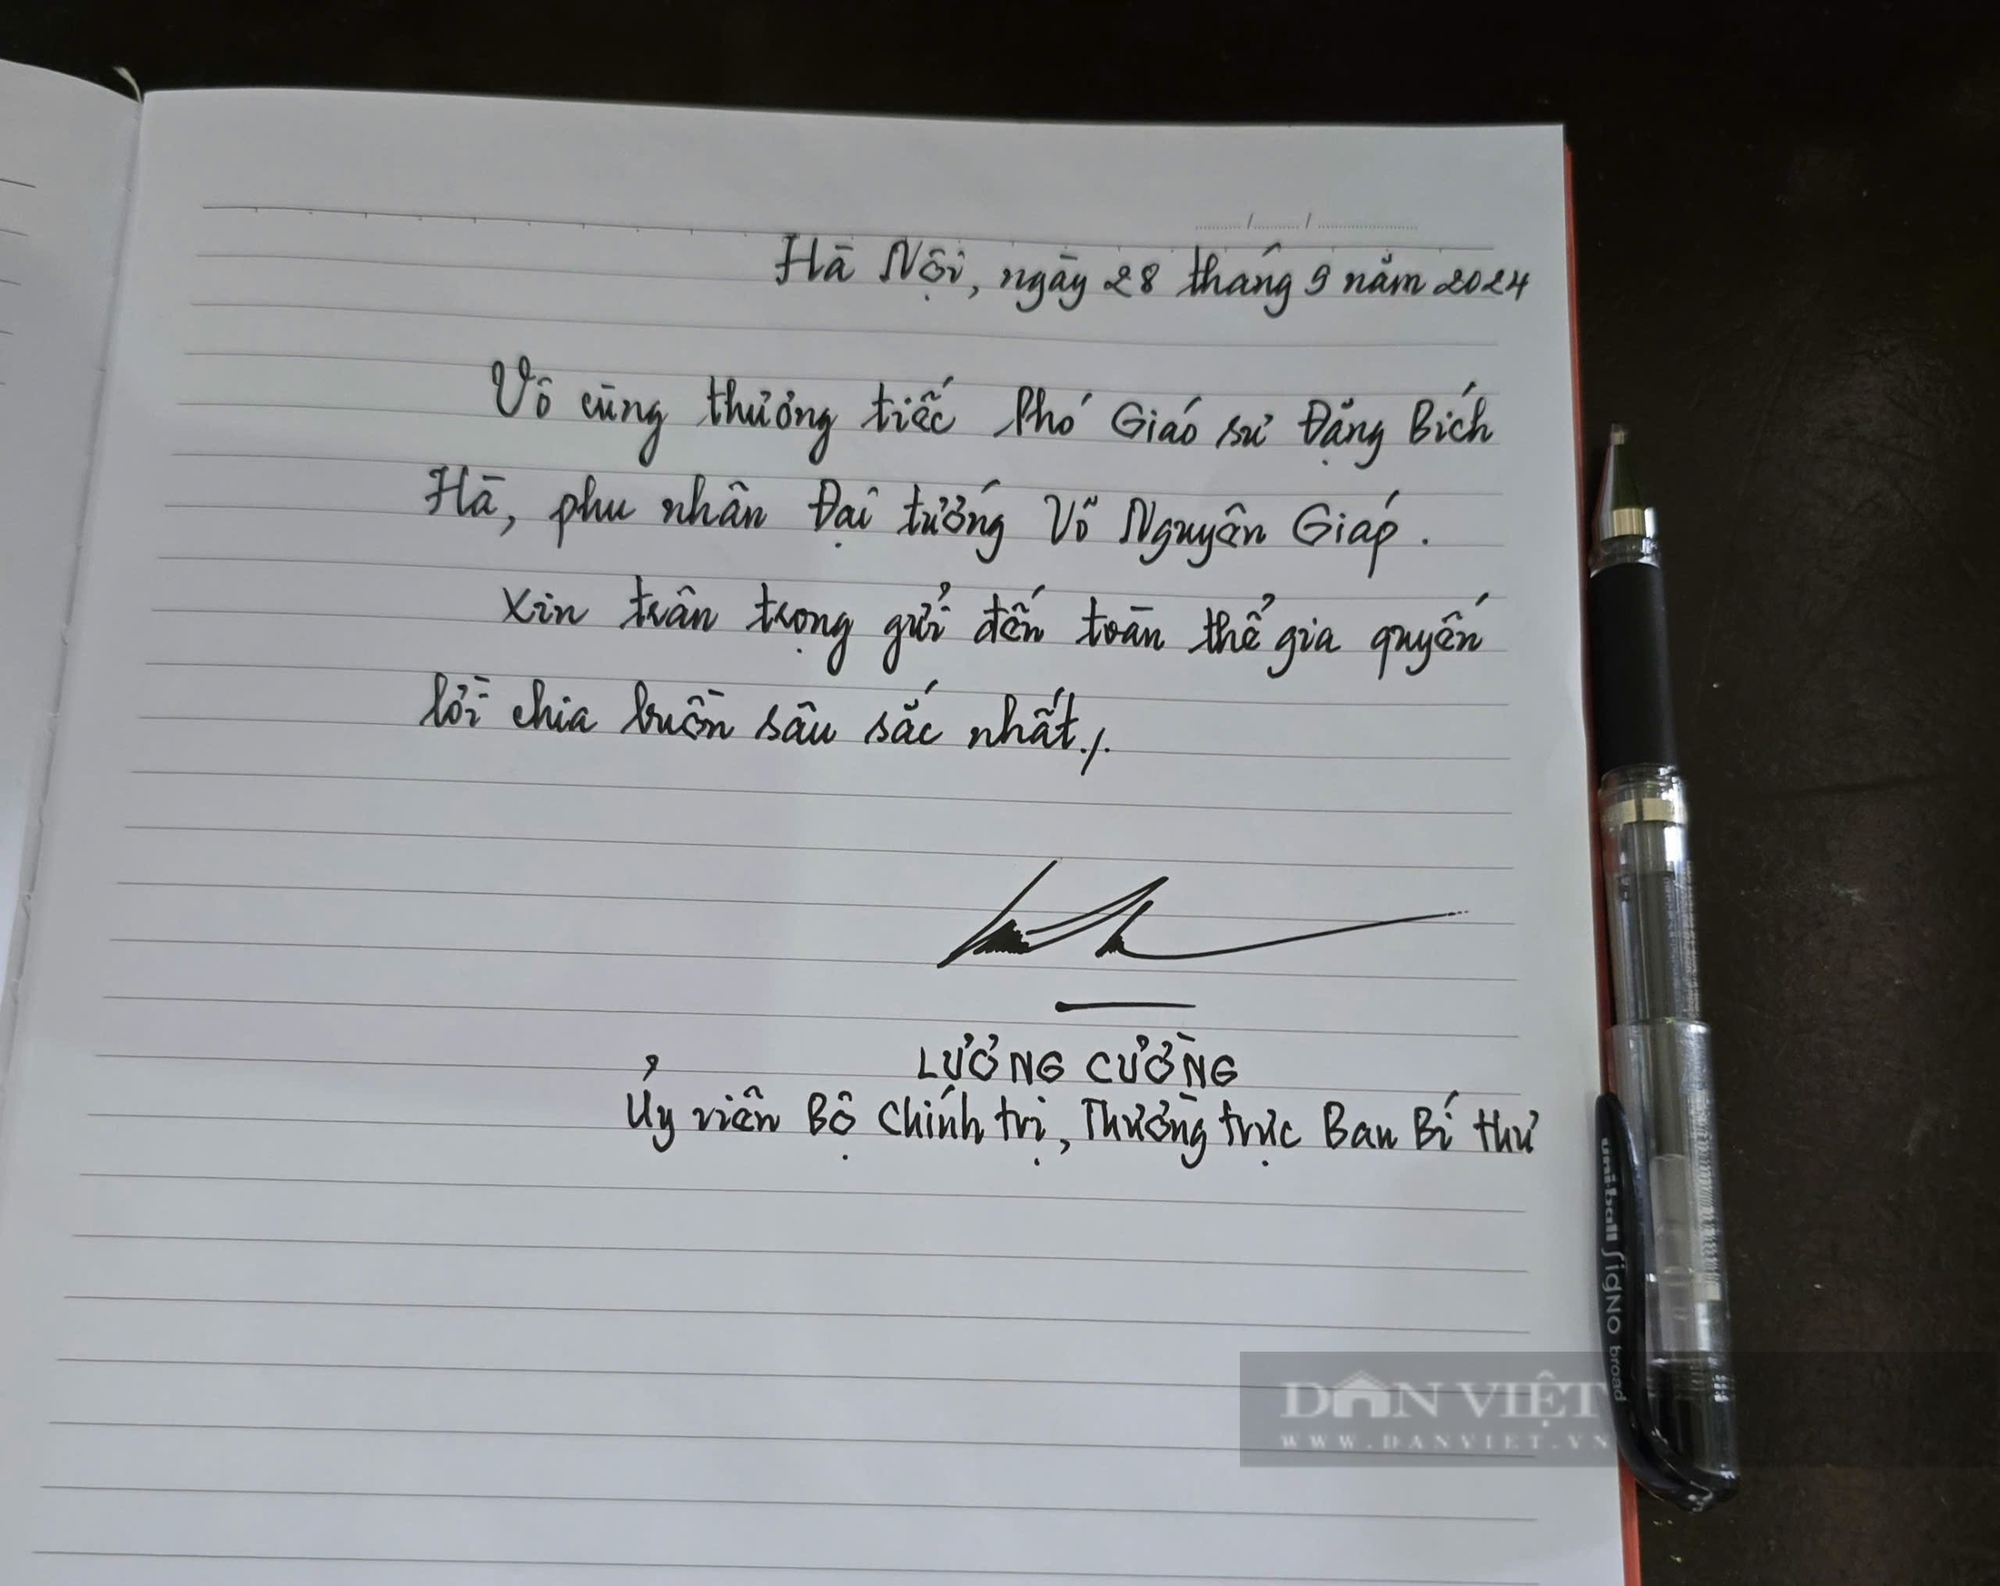 Hà Nội, ngày 28 tháng 9 năm 2024
Vô cùng thương tiếc Phó Giáo sư Đặng Bích
Hà, phu nhân Đại tướng Võ Nguyên Giáp.
Xin trân trọng gửi đến toàn thể gia quyến
lời chia buồn sâu sắc nhất./.
LƯƠNG CƯỜNG
Ủy viên Bộ Chính trị, Thường trực Ban Bí thư
uniball SigNO broad
DÂN VIỆT
WWW.DANVIET.VN